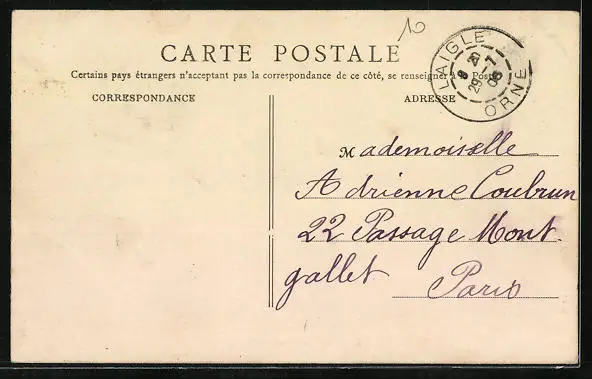 10
CARTE POSTALE
Certains pays étrangers n'acceptant pas la correspondance de ce côté, se renseigner à la Poste
CORRESPONDANCE
ADRESSE
LAIGLE
8 20
29 -7
06
ORNE
Mademoiselle
Adrienne Coubrun
22 Passage Mont
gallet Paris